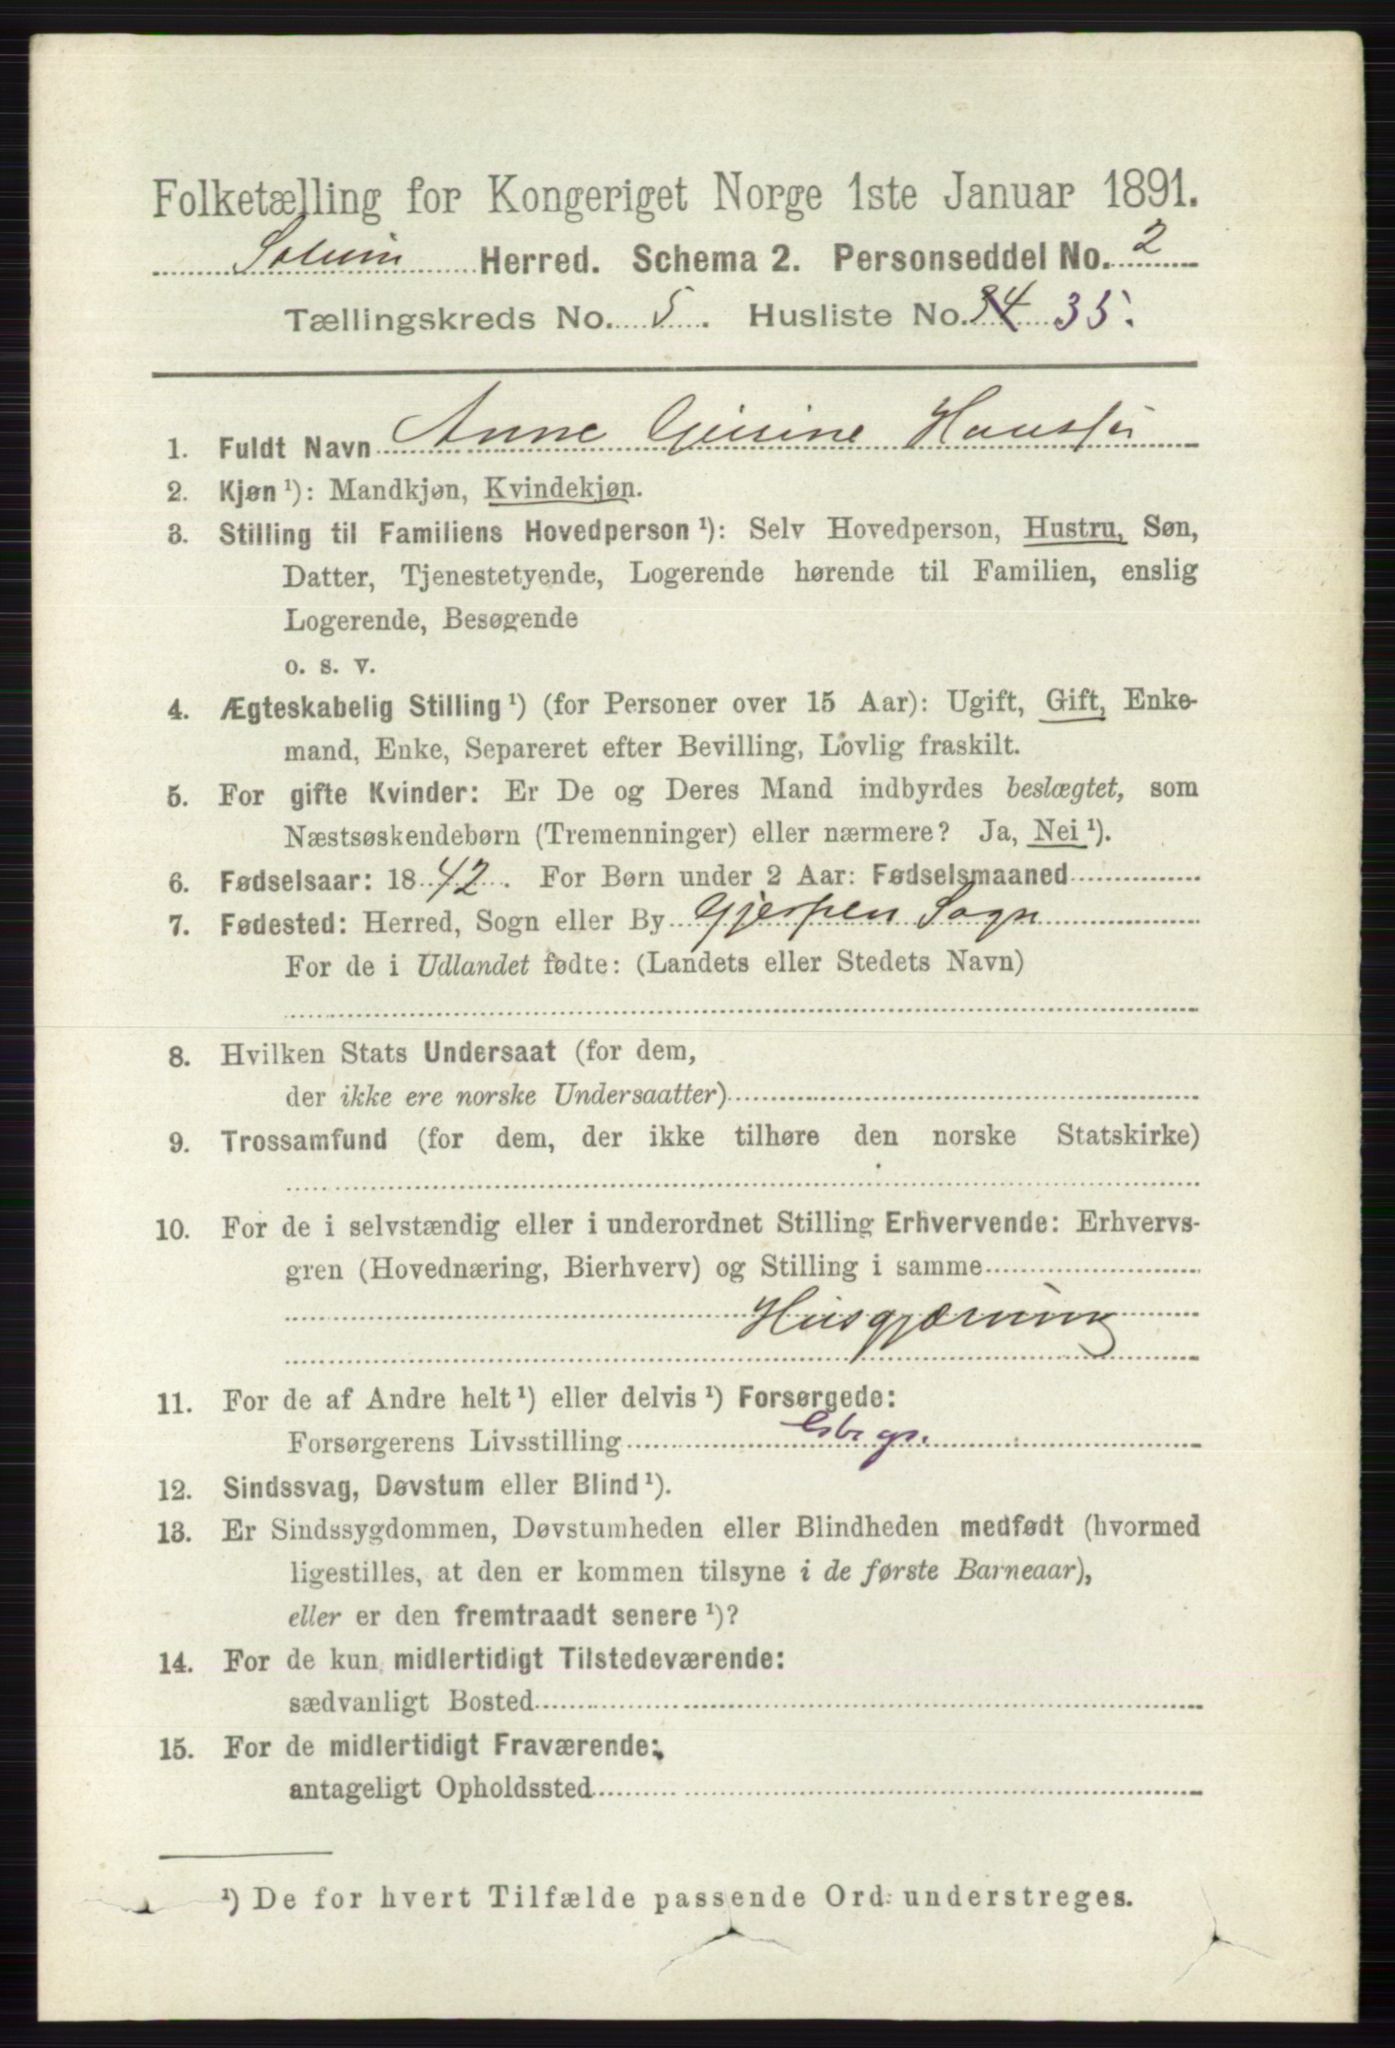 Folketælling for Kongeriget Norge 1ste Januar 1891.
Solum Herred. Schema 2. Personseddel No. 2
Tællingskreds No. 5. Husliste No. 34 35.
1. Fuldt Navn Anne Gurine
2. Kjøn ¹): Mandkjøn, Kvindekjøn.
3. Stilling til Familiens Hovedperson ¹): Selv Hovedperson, Hustru, Søn,
Datter, Tjenestetyende, Logerende hørende til Familien, enslig
Logerende, Besøgende
o. s. v.
4. Ægteskabelig Stilling ¹) (for Personer over 15 Aar): Ugift, Gift, Enke-
mand, Enke, Separeret efter Bevilling, Lovlig fraskilt.
5. For gifte Kvinder: Er De og Deres Mand indbyrdes beslægtet, som
Næstsøskendebørn (Tremenninger) eller nærmere? Ja, Nei ¹).
6. Fødselsaar: 1842. For Børn under 2 Aar: Fødselsmaaned
7. Fødested: Herred, Sogn eller By Gjerpen Sogn
For de i Udlandet fødte: (Landets eller Stedets Navn)
8. Hvilken Stats Undersaat (for dem,
der ikke ere norske Undersaatter)
9. Trossamfund (for dem, der ikke tilhøre den norske Statskirke)
10. For de i selvstændig eller i underordnet Stilling Erhvervende: Erhvervs-
gren (Hovednæring, Bierhverv) og Stilling i samme
Husgjærning
11. For de af Andre helt ¹) eller delvis ¹) Forsørgede:
Forsørgerens Livsstilling
12. Sindssvag, Døvstum eller Blind ¹).
13. Er Sindssygdommen, Døvstumheden eller Blindheden medfødt (hvormed
ligestilles, at den er kommen tilsyne i de første Barneaar),
eller er den fremtraadt senere ¹)?
14. For de kun midlertidigt Tilstedeværende:
sædvanligt Bosted
15. For de midlertidigt Fraværende:
antageligt Opholdssted
¹) De for hvert Tilfælde passende Ord understreges.